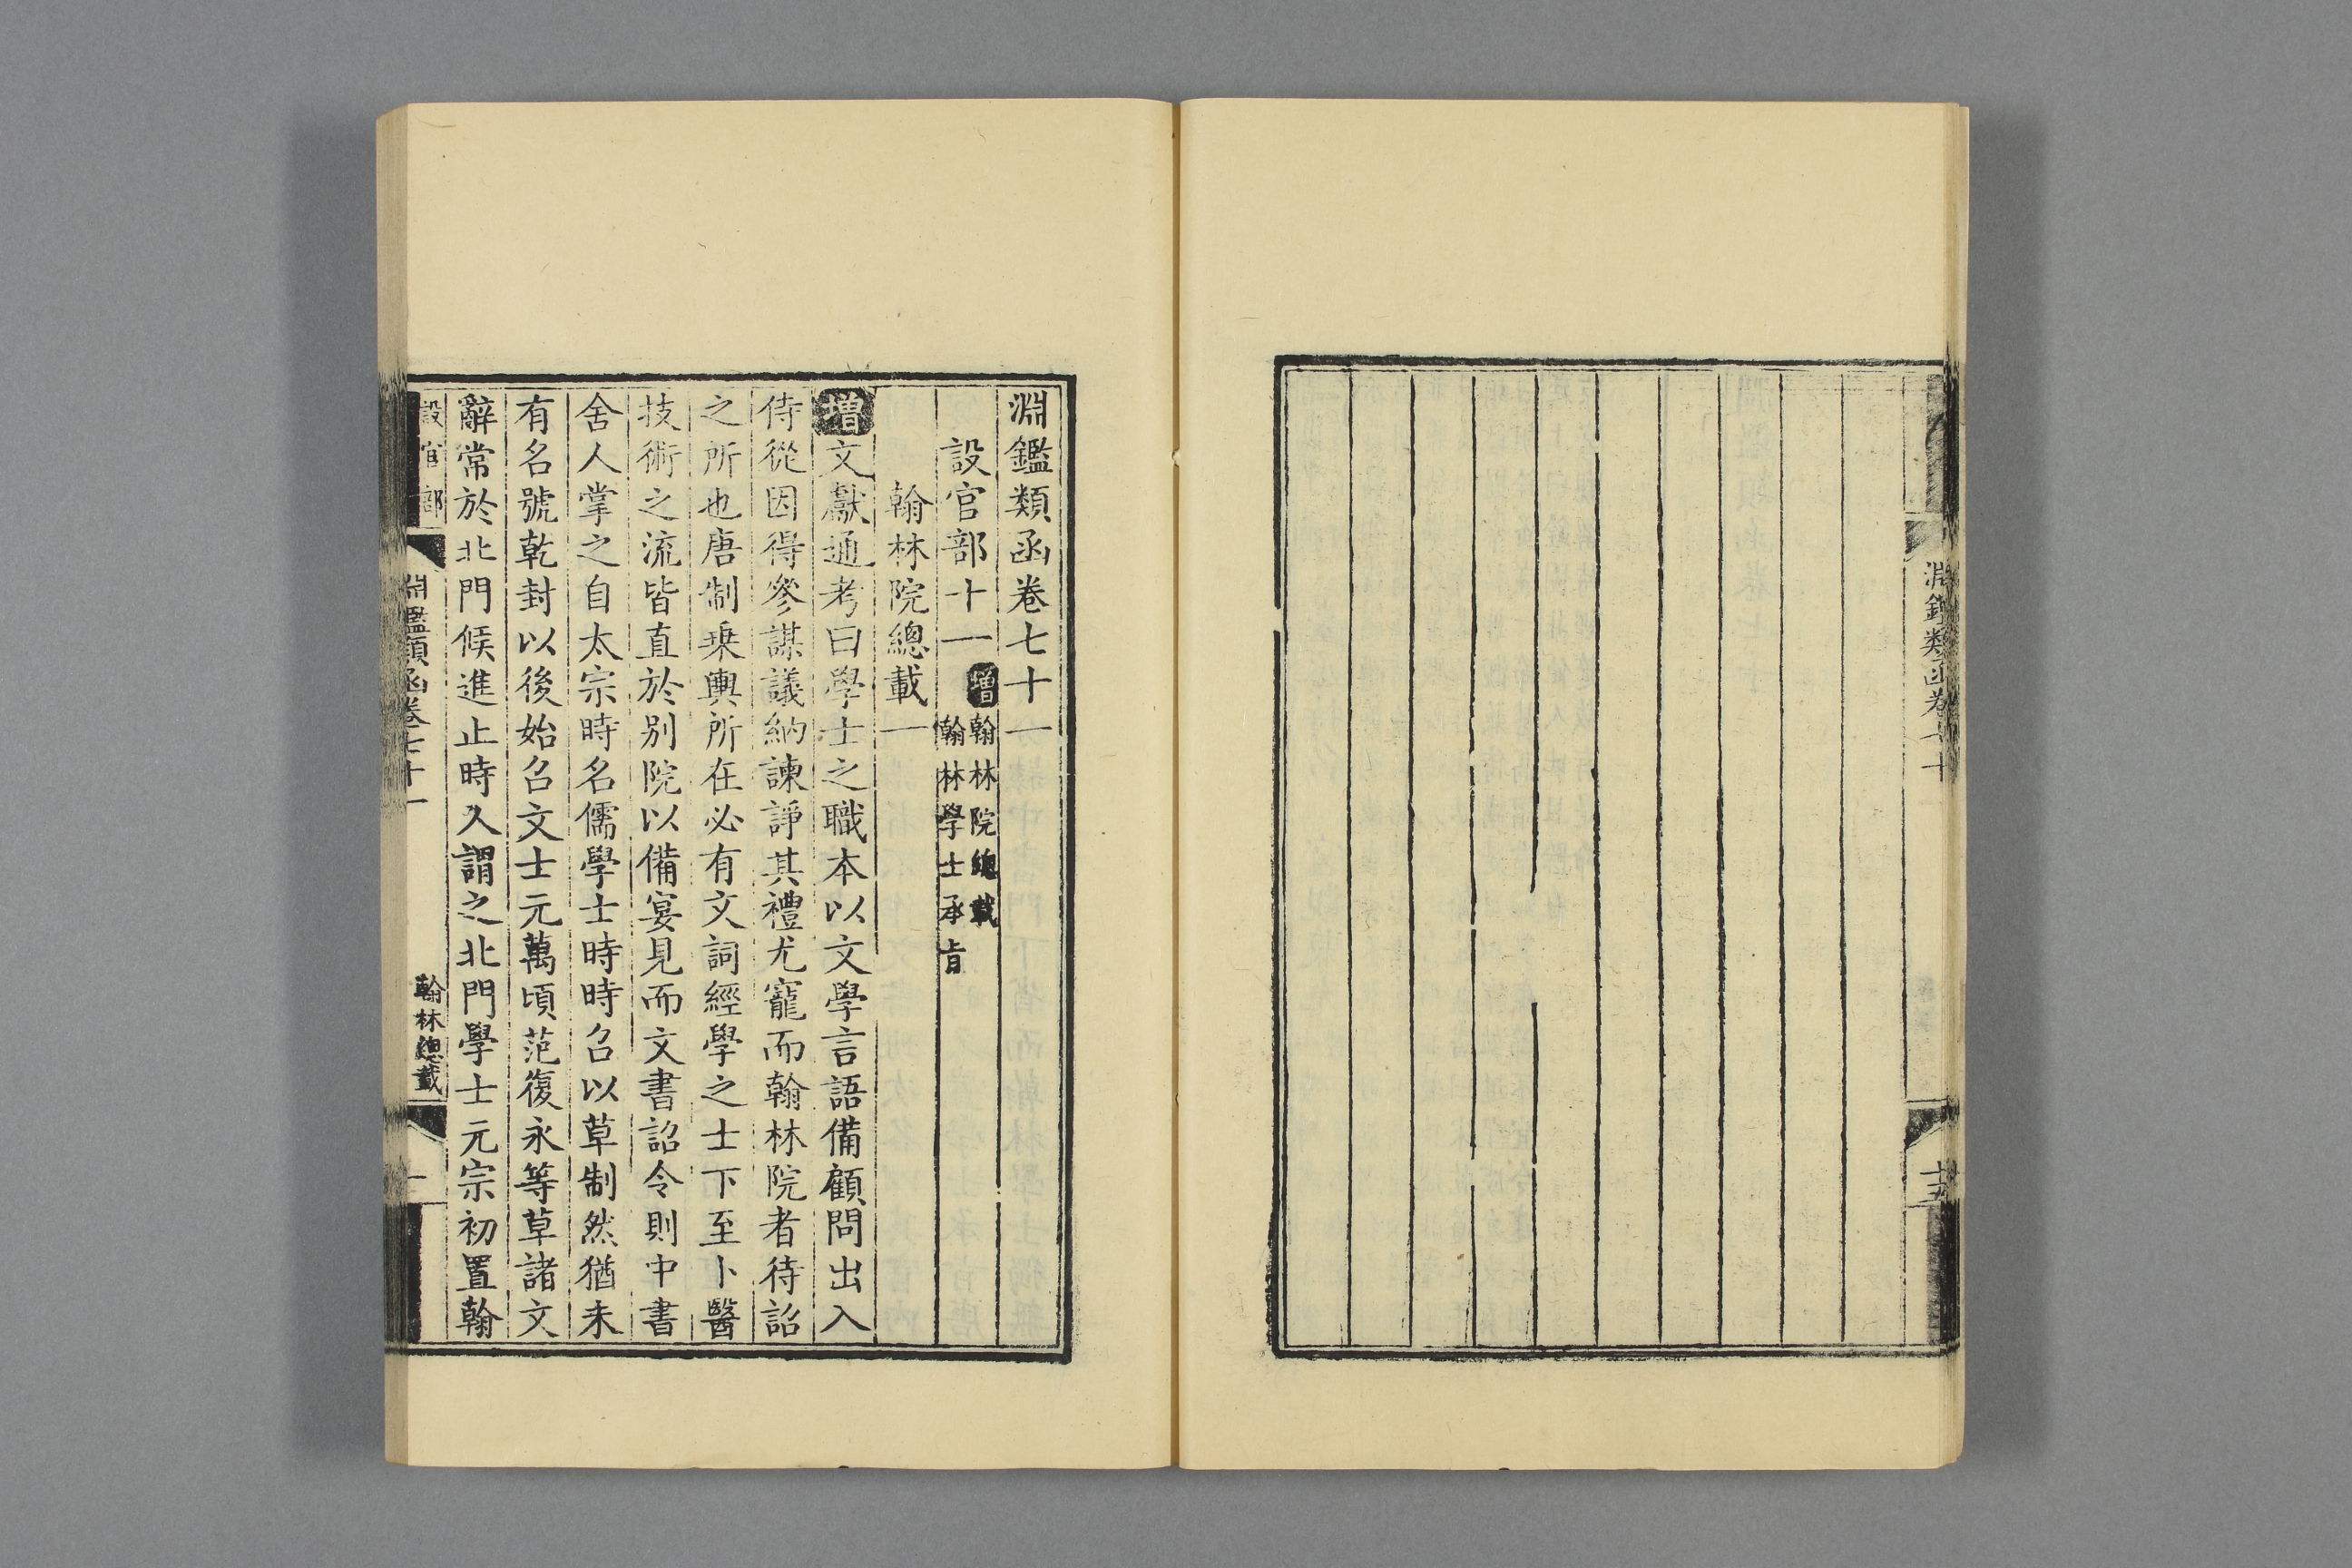 淵鑑類函卷七十
淵鑑類函卷七十一
設官部十一
增翰林院總載
翰林學士承旨
翰林院總載一
增文獻通考曰學士之職本以文學言語備顧問出入
侍從因得參謀議納諫諍其禮尤寵而翰林院者待詔
之所也唐制乗輿所在必有文詞經學之士下至卜醫
技術之流皆直於別院以備宴見而文書詔令則中書
舍人掌之自太宗時名儒學士時時召以草制然猶未
有名號乾封以後始召文士元萬頃范復永等草諸文
辭常於北門候進止時久謂之北門學士元宗初置翰
設官部
淵鑑類函卷七十一
翰林總載
一